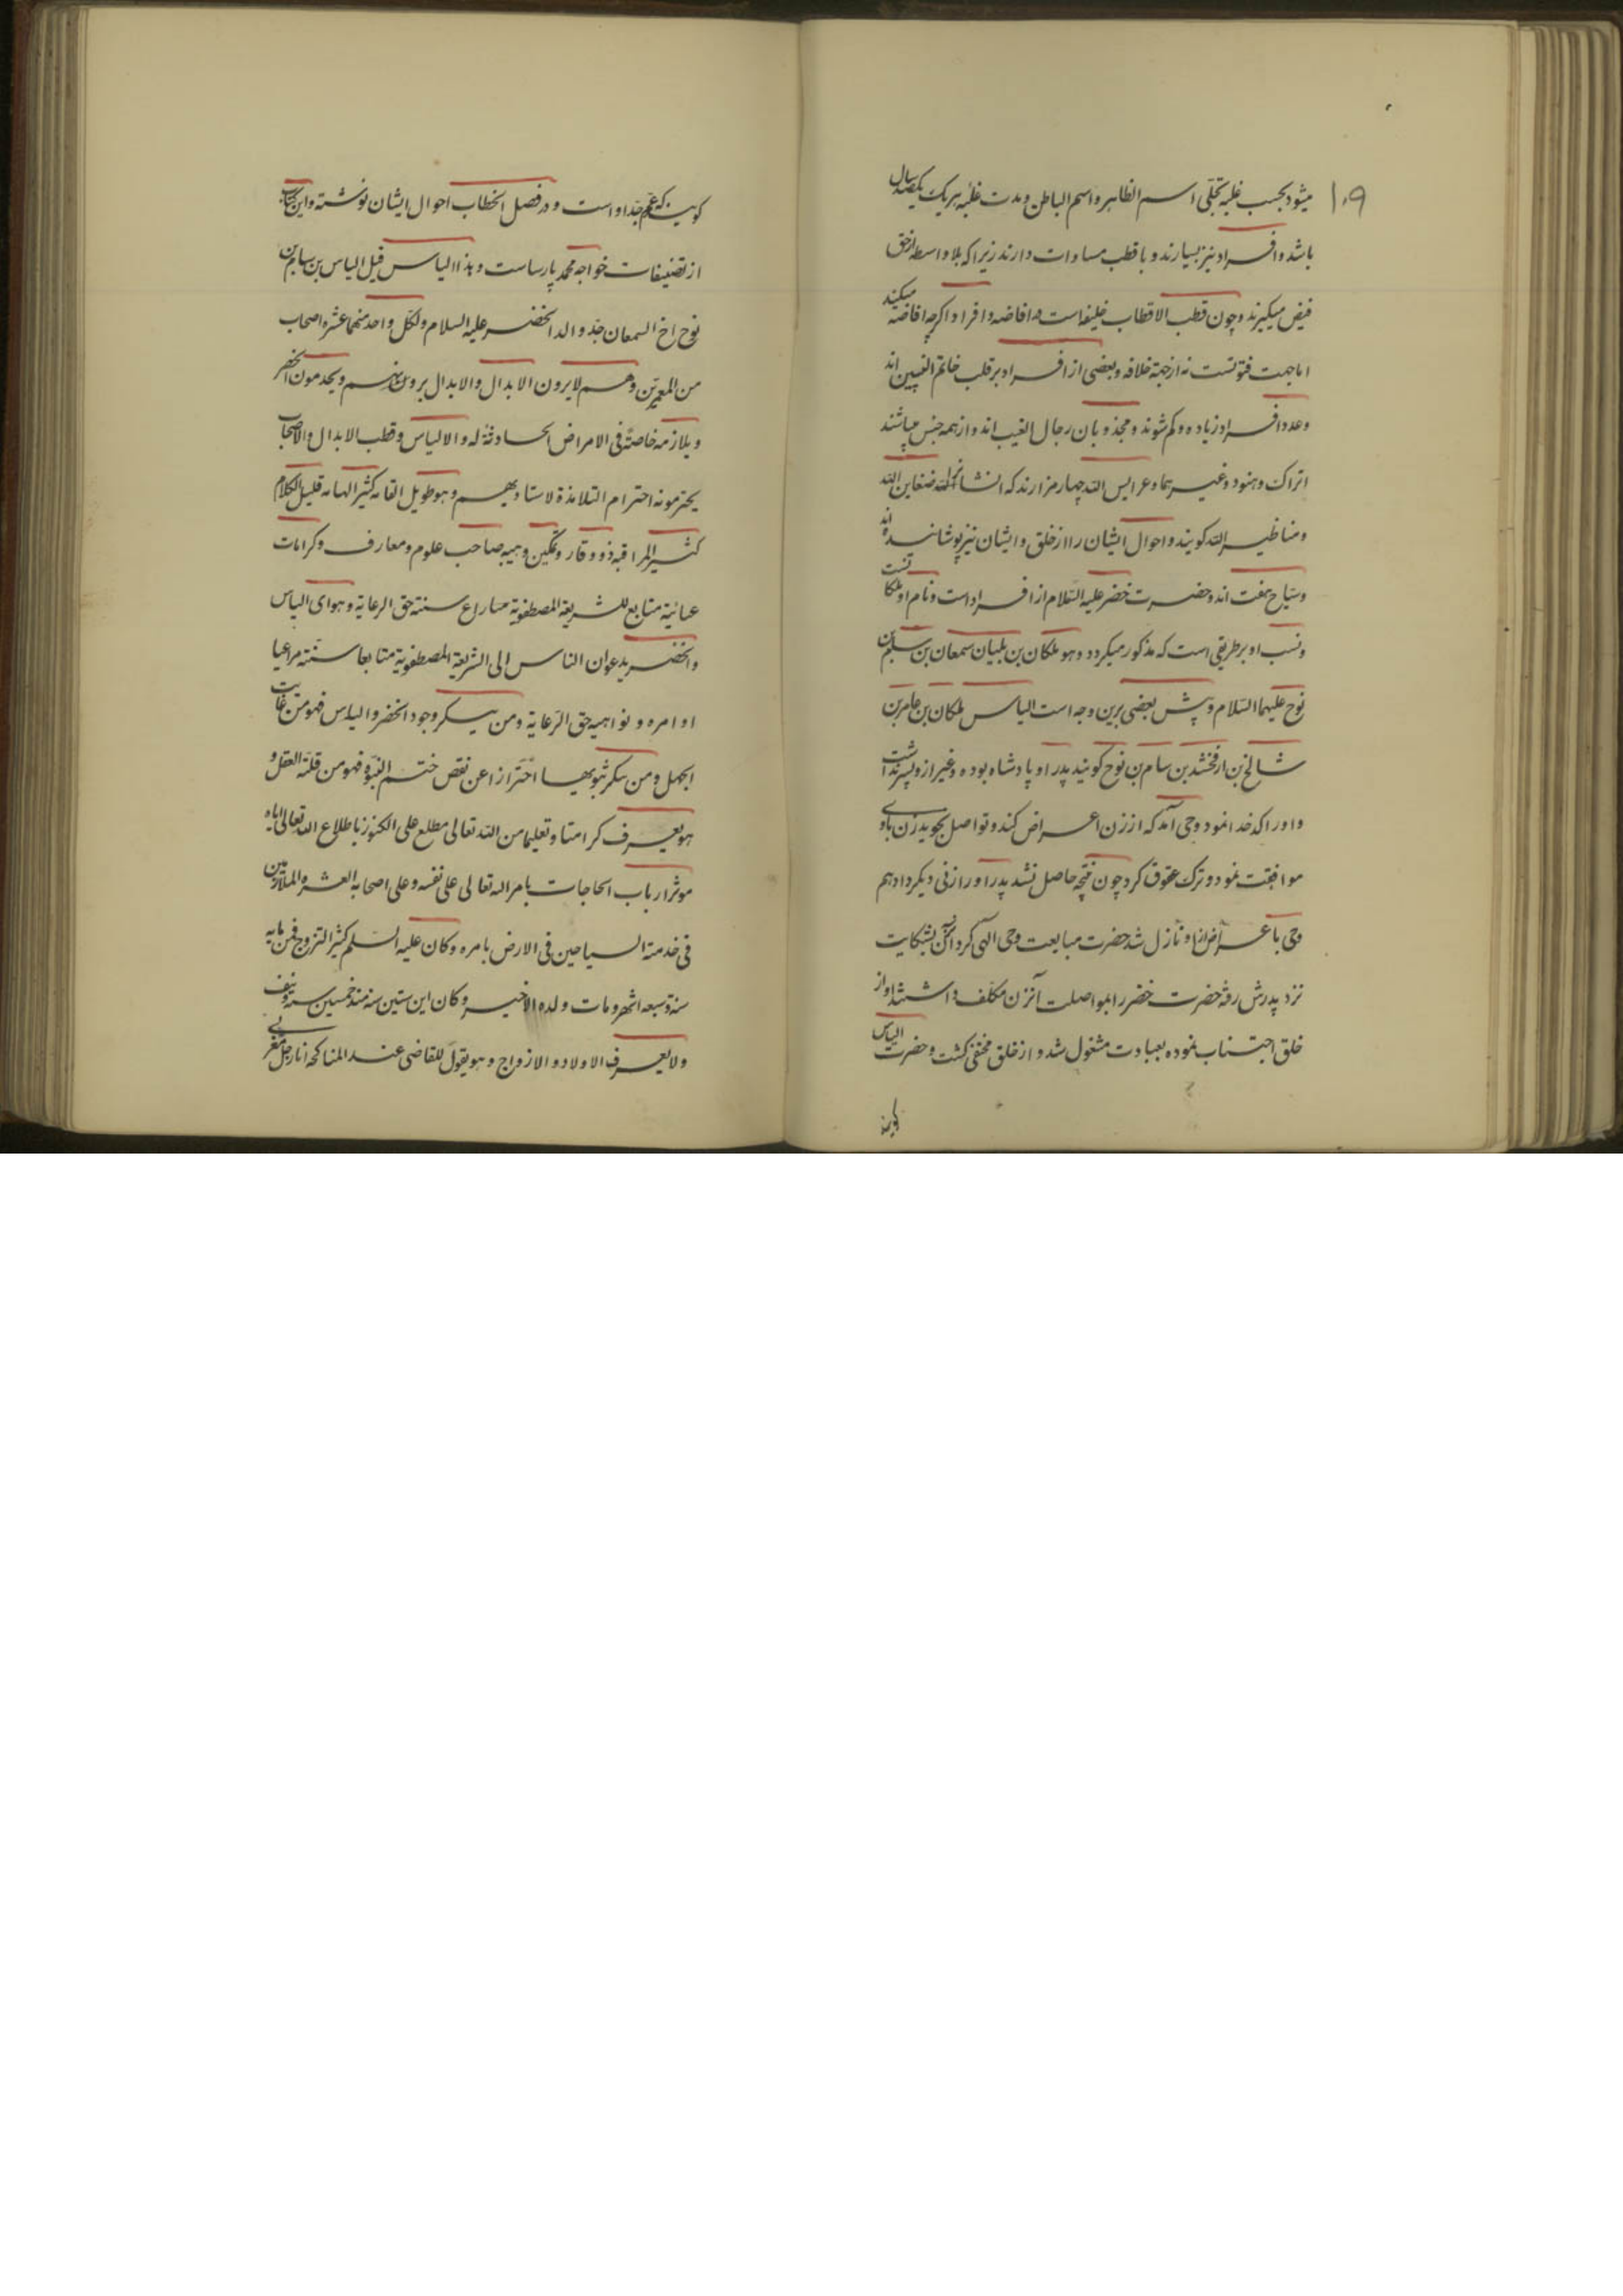 ۱۰۹
میشود بحسب غلبه تجلی اسم الظاهر و اسم الباطن و مدت غلبه هر یک یکصد سال
باشد و افراد نیز بسیارند و با قطب مساوات دارند زیرا که بلا واسطه از حق
فیض میگیرند و چون قطب الاقطاب خلیفه است در افاضه و افراد اگرچه افاضه میکنند
اما جهت فتوتست نه از جهة خلافه و بعضی از افراد بر قلب خاتم النبیین اند
و عدد افراد زیاده و کم شوند و مجذوبان رجال الغیب اند و از همه جنس میباشند
اتراک و هنود و غیرهما و عرایس الله چهار هزارند که ضنایین الله
و مناظیر الله کویند و احوال ایشان را از خلق و ایشان نیز پوشانیده اند
و سیاح هفت اند و حضرت خضر علیه السلام از افراد است و نام او ملکا نست
و نسب او بر طریقی است که مذکور میکردد و هو ملکان بن بلیان سمعان بن سام بن
نوح علیهما السلام و پیش بعضی برین وجه است الیاس ملکان بن عامر بن
شالخ بن ارفخشد بن سام بن نوح کویند پدر او پادشاه بوده و غیر از و پسر نداشت
و او را کدخدا نمود وحی آمد که از زن اعراض کند و تواصل بجوید زن با وی
موافقت نمود و ترک عقوق کرد چون نتیجه حاصل نشد پدر او را زنی دیکر داد هم
وحی با عراض از او نازل شد حضرت مبایعت وحی الهی کرد آن زن بشکایت
نزد پدرش رفته حضرت خضر را بمواصلت آنزن مکلف داشتند او از
خلق اجتناب نموده بعبادت مشغول شد و از خلق مختفی کشت و حضرت الیاس
کویند که عم جد او است و در فصل الخطاب احوال ایشان نوشته و این کتاب
از تصنیفات خواجه محمد پارساست و هذا الیاس قیل الیاس بن سام بن
نوح اخ السمعان جد والد الخضر علیه السلام و لکل واحد منهما عشره اصحاب
من المعمرین و هم لا یرون الابدال و الابدال یرونهم و یخدمون الخضر
و یلازمه خاصة فی الامراض الحادثة له و الالیاس و قطب الابدال و الاصحاب
یحترمونه احترام التلامذة لاستادیهم و هو طویل القامه کثیر المهابه قلیل الکلام
کثیر المراقبه ذو وقار و تمکین و هیبه صاحب علوم و معارف و کرامات
عیانیة متابع للشریعة المصطفویة مراع سنته حق الرعایة و هو ای الیاس
و الخضر یدعوان الناس الی الشریعة المصطفویة متابعا سنته مراعیا
اوامره و نواهیه حق الرعایة و من ینکر وجود الخضر و الیاس فهو من غایت
الجهل و من ینکر ثبوتهما احتراز اعن نقص ختم النبوة فهو من قلة العقل و
هو یعرف کرامتا و تعلیما من الله تعالی مطلع علی الکنوز باطلاع الله تعالی ایاه
موثر ارباب الحاجات بامر الله تعالی علی نفسه و علی اصحابه العشره الملازمین
فی خدمته السیاحین فی الارض بامره و کان علیه السلم کثیر التزوج فمن مایه
سنة و سبعه اشهر و مات ولده الاخیر و کان ابن ستین سنه منذ خمسین سنة و نیف
و لا یعرف الاولاد و الازواج و هو یقول للقاضی عند المناکحه انا رجل مغربی